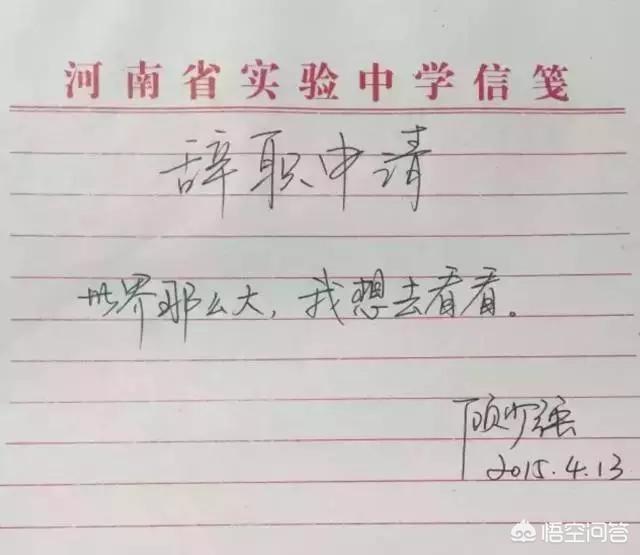 河南省实验中学信笺
辞职申请
世界那么大，我想去看看。
顾少强
2015.4.13
悟空问答